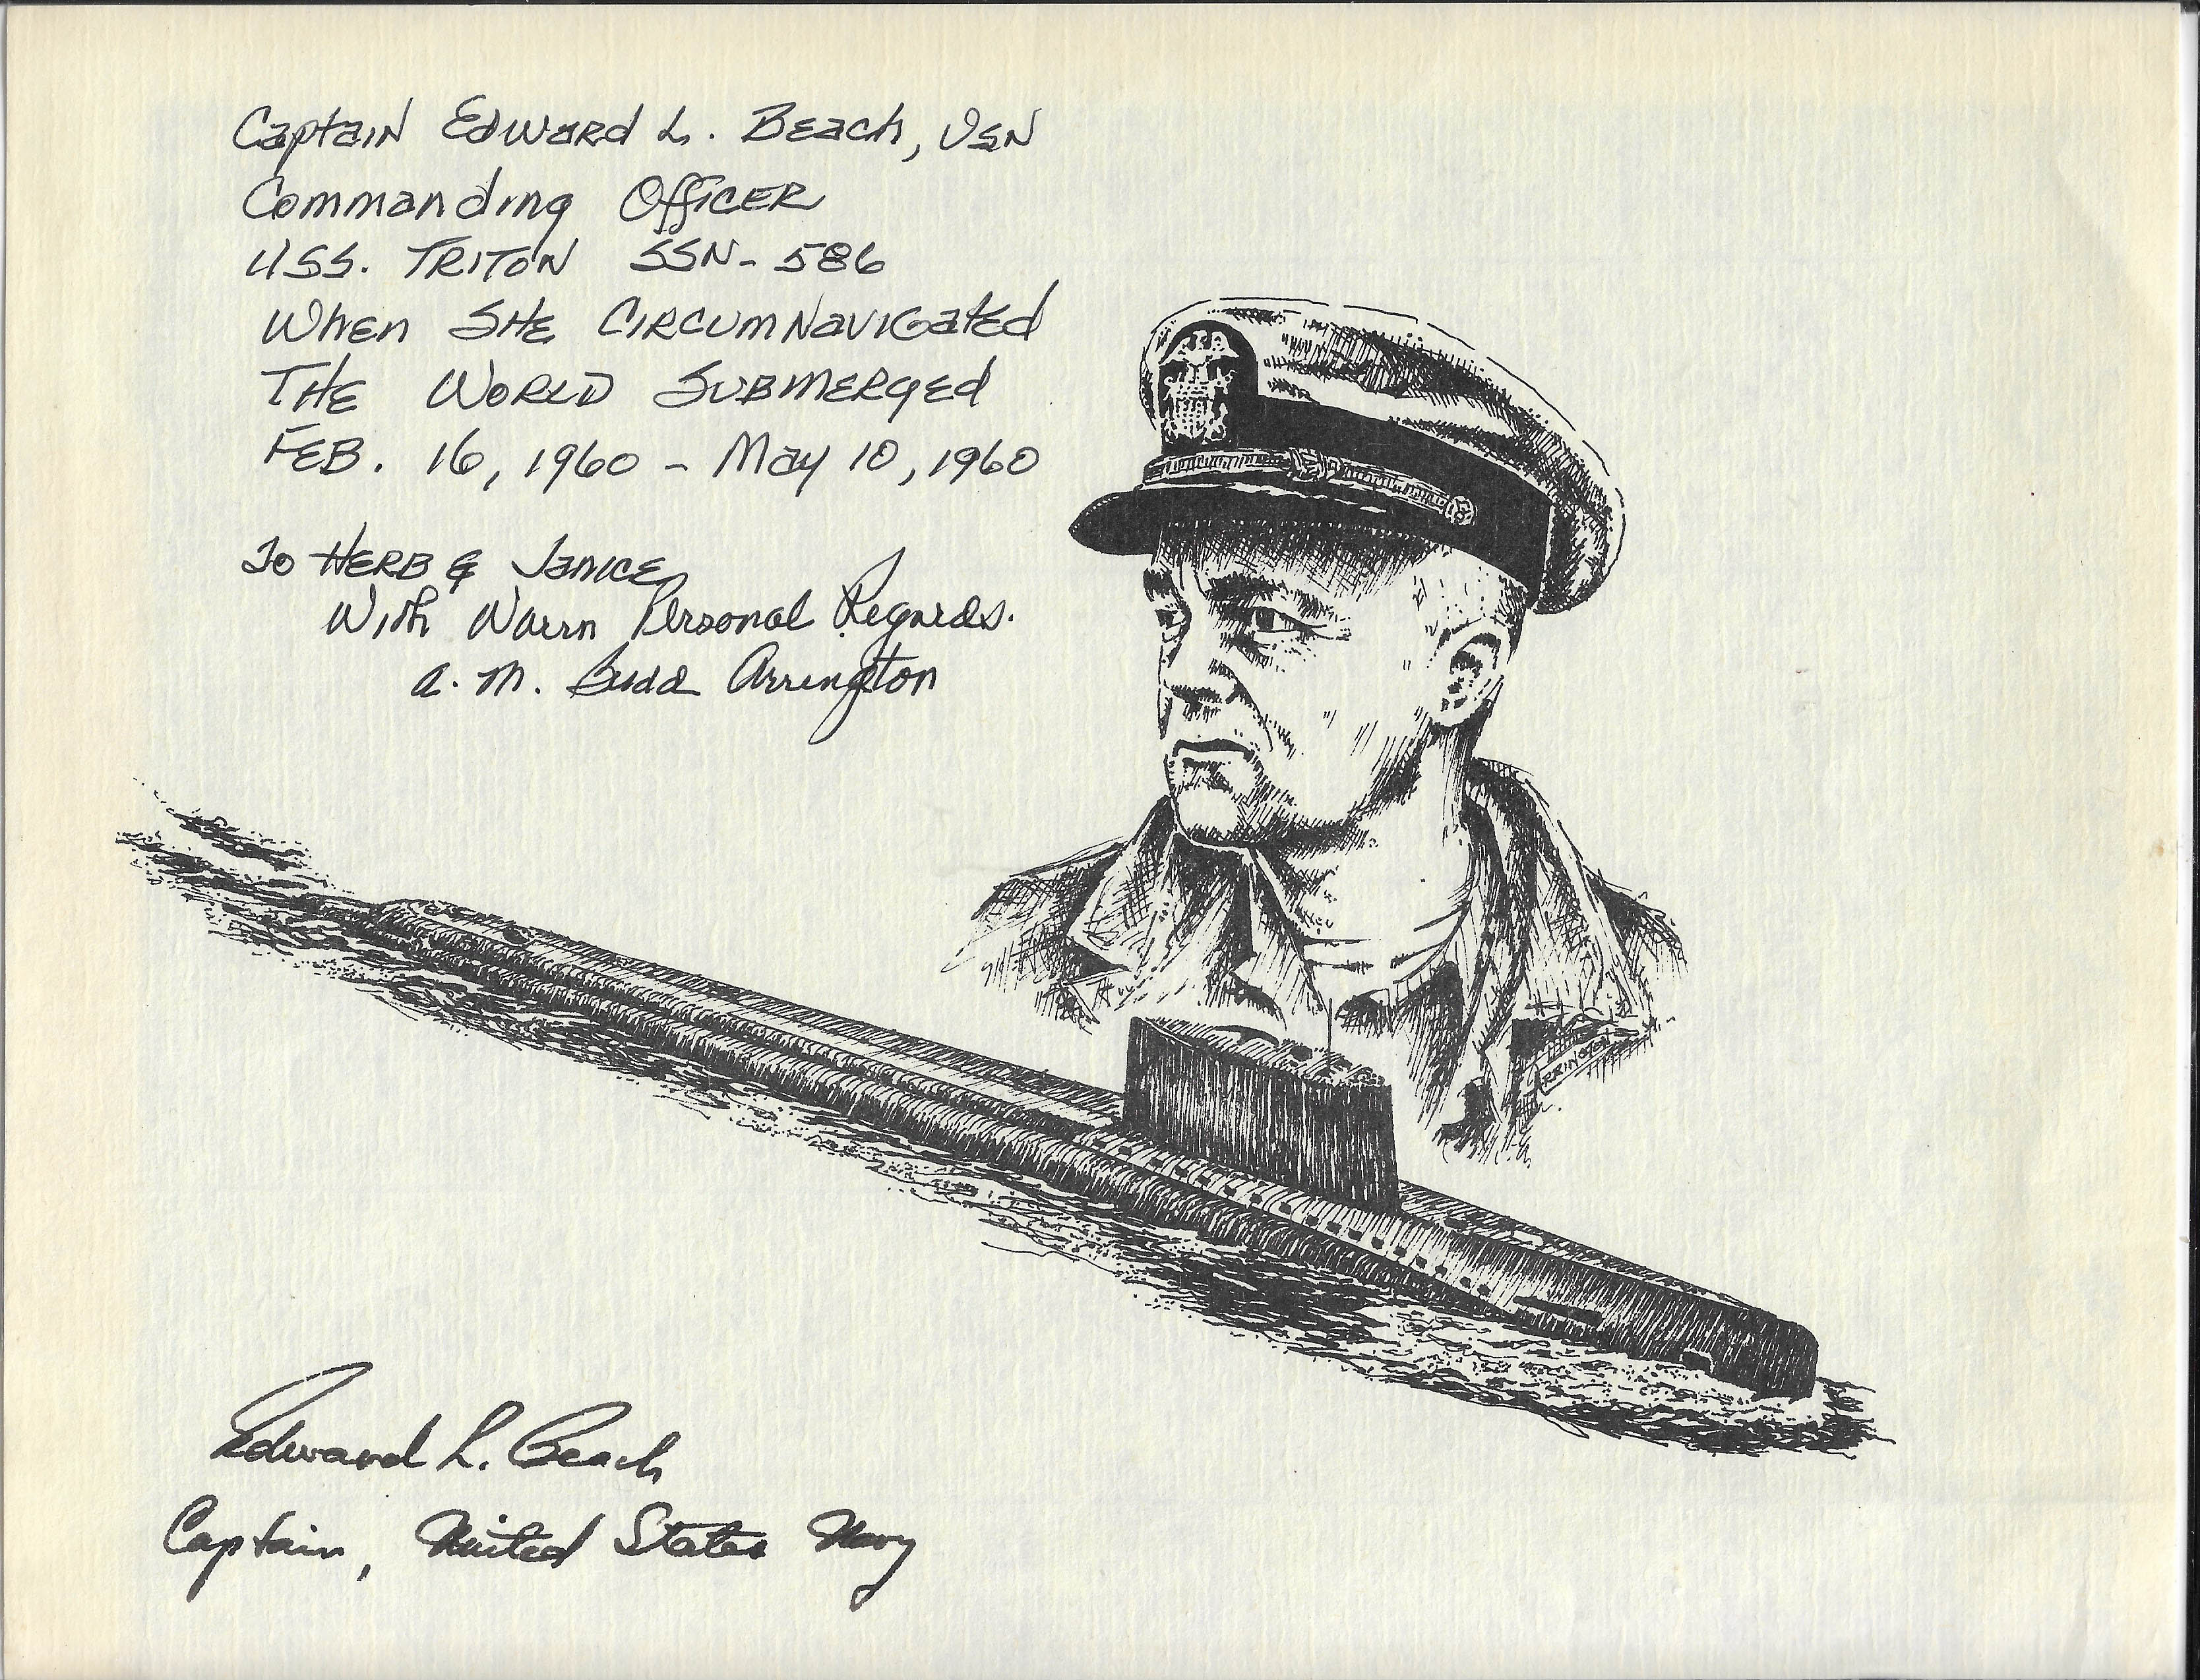 Captain Edward L. Beach, USN
Commanding Officer
USS. TRITON SSN-586
When SHE CIRCUMNavigated
THE WORLD SUBMERGED
FEB. 16, 1960 - May 10, 1960
To HERB & Janice
With Warm Personal Regards.
A. M. Budd Arrington
RRINGTON
Edward L. Beach
Captain, United States Navy